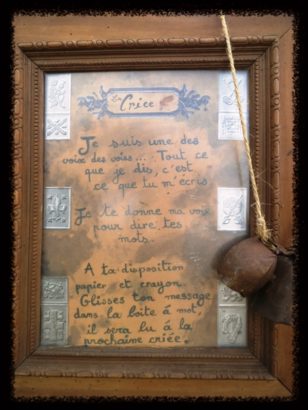 La Criée
Je suis une des
voix des voies... Tout ce
que je dis, c'est
ce que tu m'écris
Je te donne ma voix
pour dire tes
mots.
A ta disposition
papier et crayon.
Glisses ton message
dans la boîte à mot,
il sera lu à la
prochaine criée.